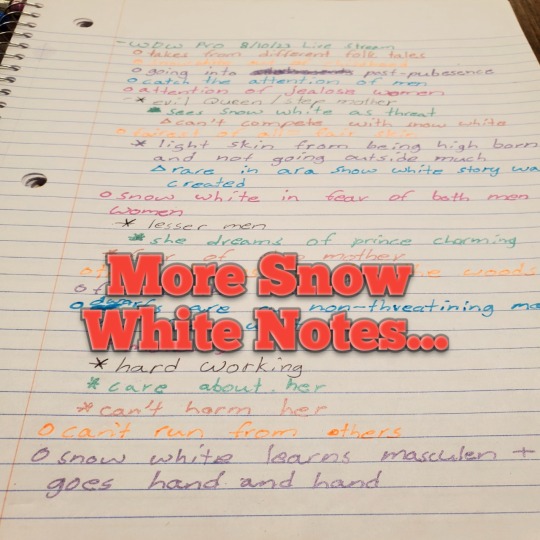 - WDW Pro 8/10/23 Live Stream
o takes from different folk tales
o going into post-pubesence
o catch the attention of men
o attention of jealose women
* evil Queen / step mother
sees snow white as threat
Δ can't compete with snow white
o fairest of all fair skin
* light skin from being high born
and not going outside much
Δ rare in ara snow white story was
created
o snow white in fear of both men
women
* lesser men
* she dreams of prince charming
* of mother
the woods
o are non-threatining
More Snow
White Notes...
* hard working
* care about her
* can't harm her
o can't run from others
o snow white learns masculen +
goes hand and hand